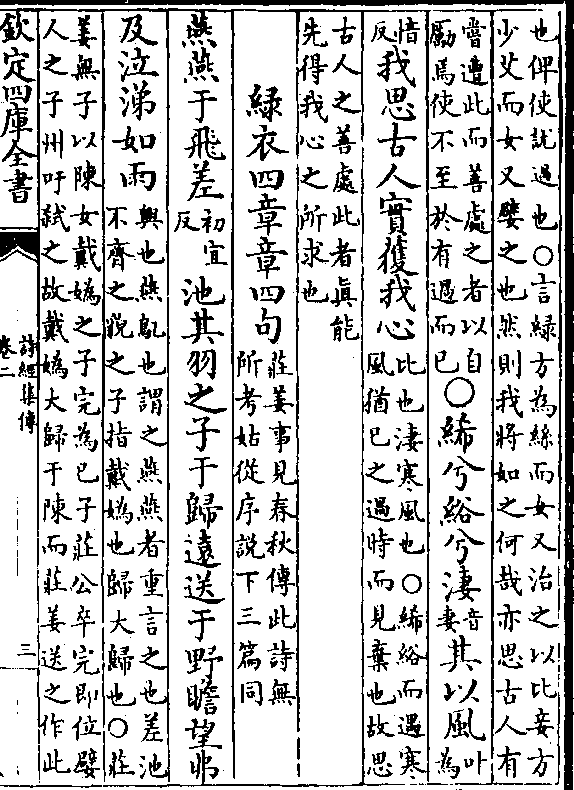 也俾使訧過也〇言緑方為絲而女又治之以比妾方
少艾而女又嬖之也然則我將如之何哉亦思古人有
嘗遭此而善處之者以自
勵焉使不至於有過而已
〇絺兮綌兮淒
音
妻
其以風
叶
為
愔
反
我思古人實獲我心
比也淒寒風也〇絺綌而遇寒
風猶已之過時而見棄也故思
古人之善處此者真能
先得我心之所求也
緑衣四章章四句
莊姜事見春秋傳此詩無
所考姑從序說下三篇同
燕燕于飛差
初宜
反
池其羽之子于歸遠送于野瞻望弗
及泣涕如雨
興也燕鳦也謂之燕燕者重言之也差池
不齊之貌之子指戴嬀也歸大歸也〇莊
姜無子以陳女戴嬀之子完為已子莊公卒完即位嬖
人之子州吁弑之故戴嬀大歸于陳而莊姜送之作此
欽定四庫全書
詩經集傳
卷二
三